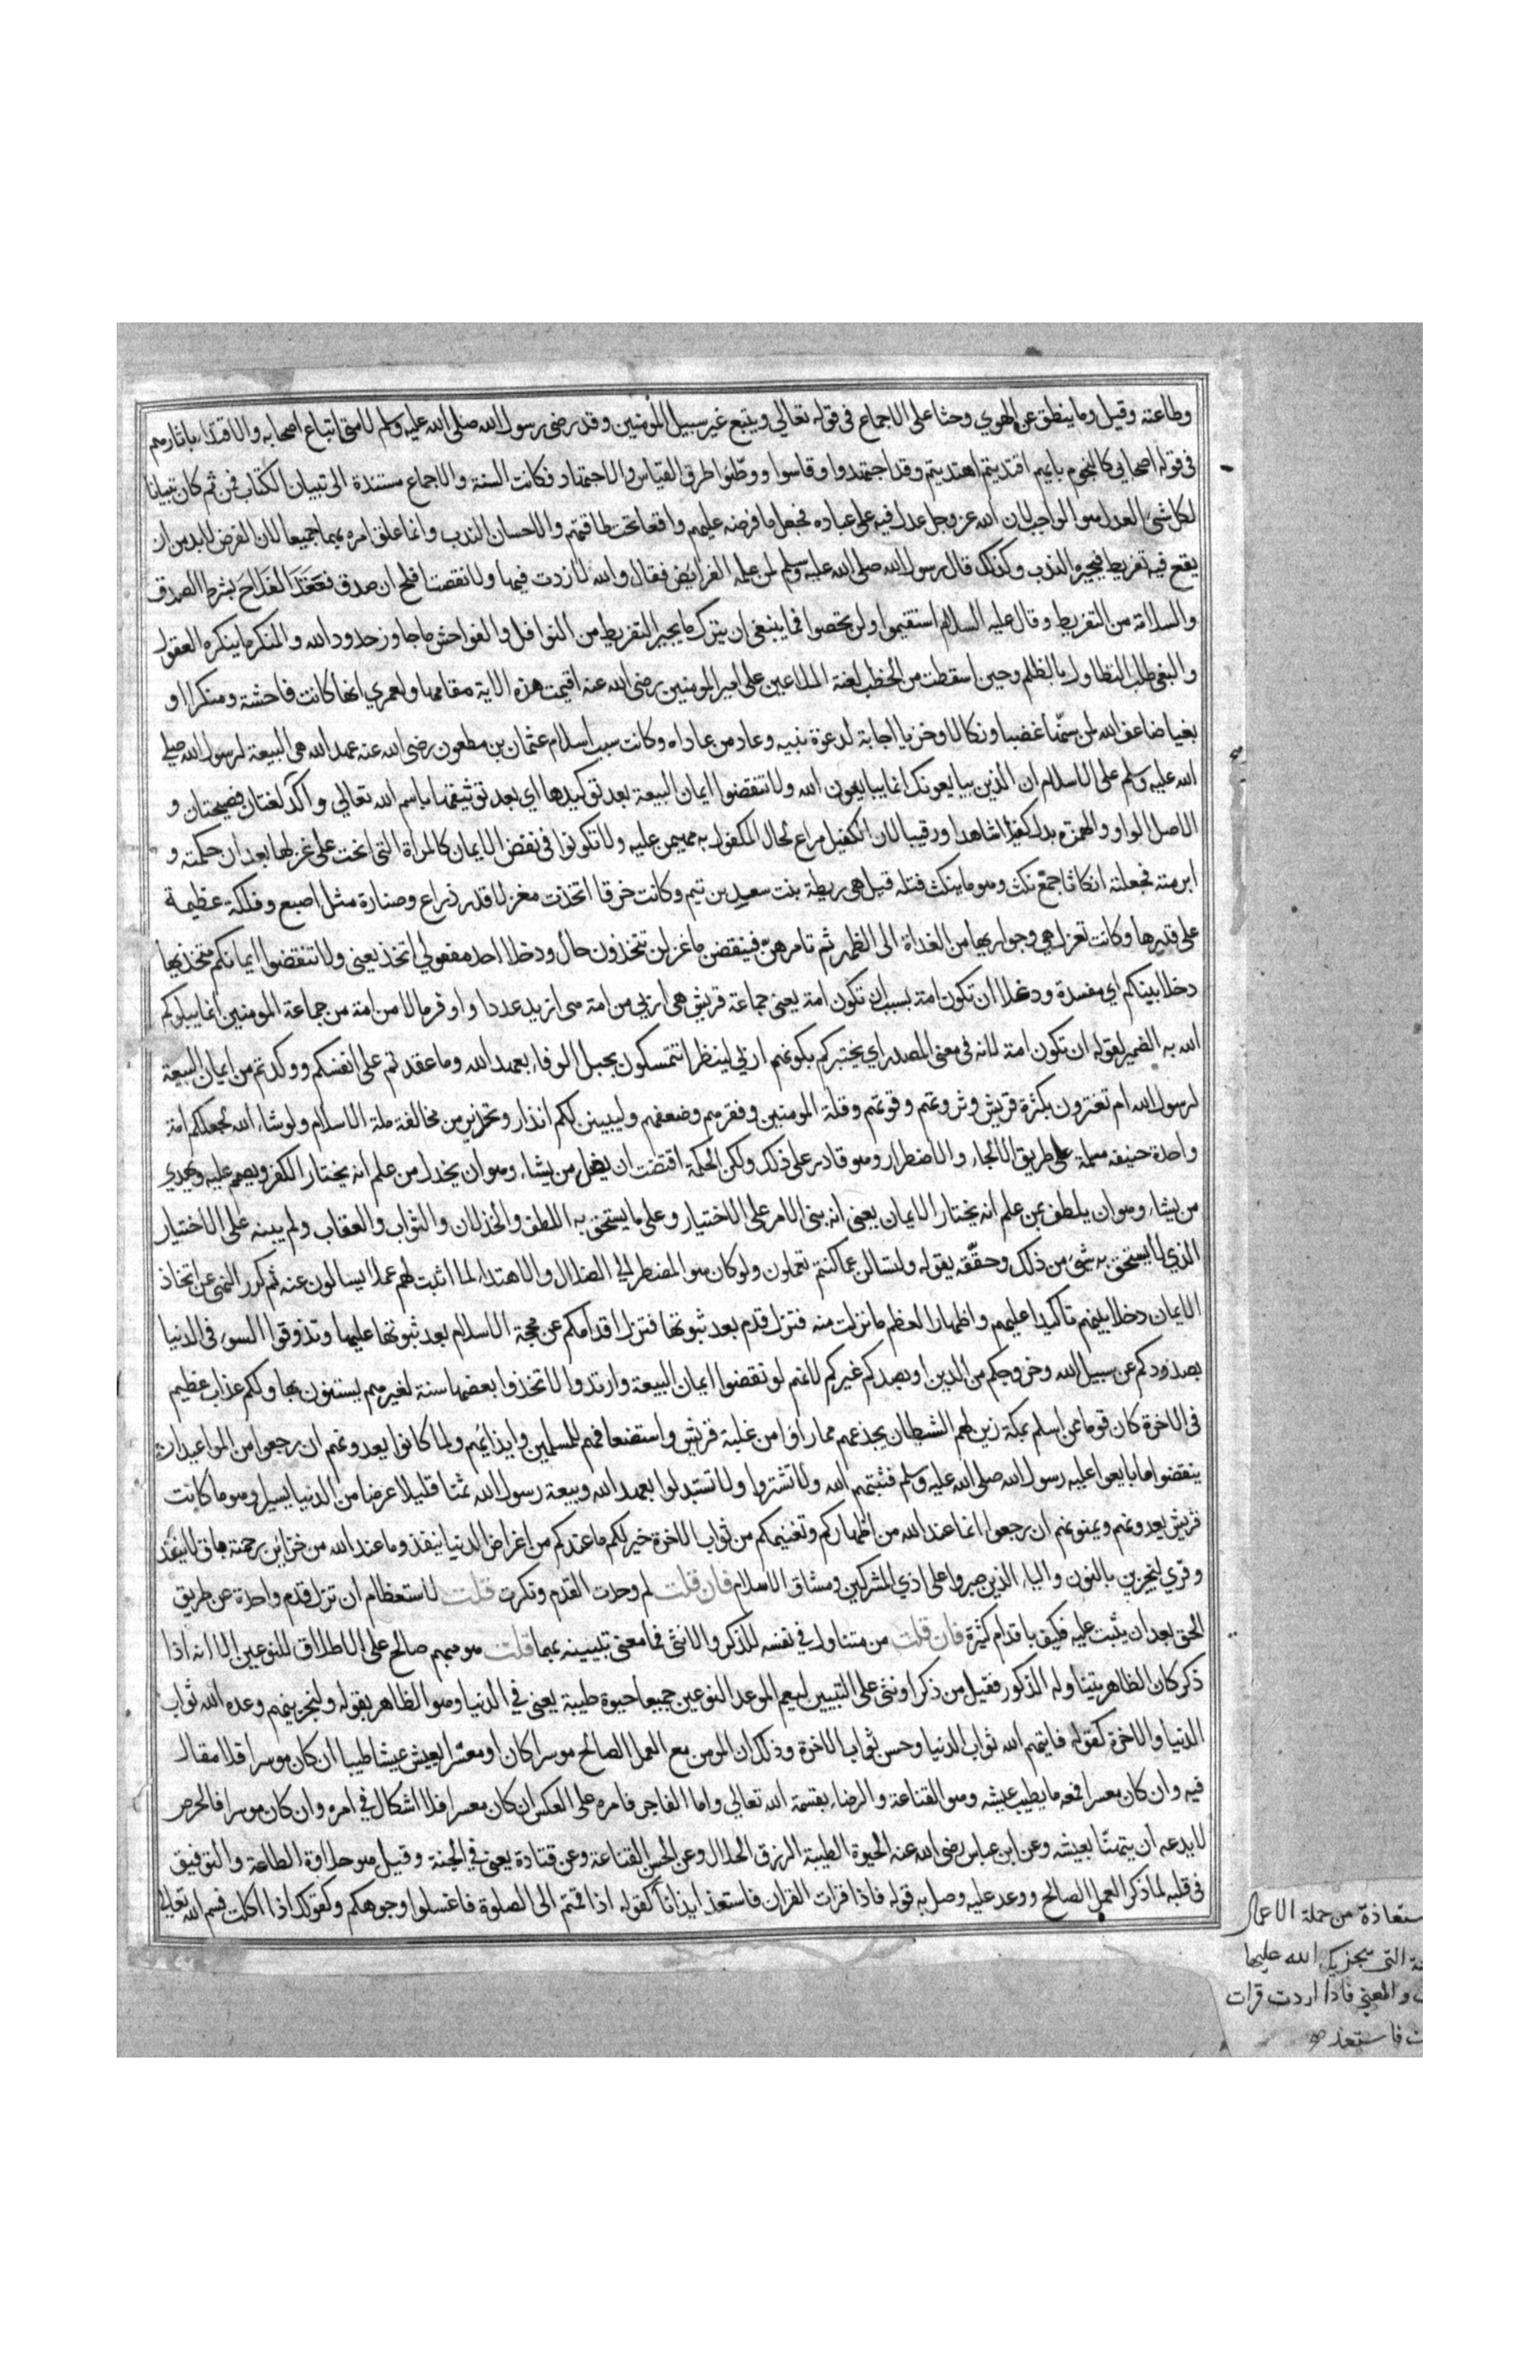 وطاعته وقيل وما ينطق عن الهوي وحثا على الاجماع فى قوله تعالي ويتبع غير سبيل المؤمنين وقد رضى رسول الله صلى الله عليه وسلم لامتى اتباع اصحابه والاقتداء باثارهم
فى قوله اصحابي كالنجوم بايهم اقتديتم اهتديتم وقد اجتهدوا وقاسوا ووطئوا طرق القياس والاجتهاد فكانت السنة والاجماع مستندة الى تبيان الكتاب فمن ثم كان تبيانا
لكل شئ العدل هو الواجب لان الله عز وجل عدل فيه على عباده فجعل ما فرضه عليهم واقعا تحت طاقتهم والاحسان الندب وانما علق امره بهما جميعا لان الفرض لابد من ان
يقع فيه تفريط فيجبره الندب وكذلك قال رسول الله صلى الله عليه وسلم لمن علمه الفرايض فقال والله لا زدت فيها ولا نقصت افلح ان صدق فعقد الفلاح بشرط الصدق
والسلامة من التفريط وقال عليه السلام استقيموا ولن تحصوا فما ينبغى ان يترك ما يجبر التفريط من النوافل والفواحش ما جاوز حدود الله والمنكر ما ينكره العقول
والبغى طلب التطاول بالظلم وحين اسقطت من الخطب لعنة الملاعين على امير المومنين رضى الله عنه اقيمت هذه الاية مقامها ولعمري انها كانت فاحشة ومنكرا و
بغيا ضاعف الله لمن سنّها غضبا ونكالا وخزيا اجابة لدعوة نبيه وعاد من عاداه وكانت سبب اسلام عثمان بن مظعون رضى الله عنه عهد الله هى البيعة لرسول الله صلى
الله عليه وسلم على الاسلام ان الذين يبايعونك انما يبايعون الله ولا تنقضوا ايمان البيعة بعد توكيدها اي بعد توثيقها باسم الله تعالي واكد لغتان فصيحتان و
الاصل الواو والهمزه بدل كفيلا شاهدا ورقيبا لان الكفيل مراع لحال المكفول به مهيمن عليه ولا تكونوا فى نقض الايمان كالمراة التى انحت على غزلها بعد ان حكمته و
ابرمته فجعلته انكاثا جمع نكث وهو ما ينكث فتله قيل هى ريطة بنت سعيد بن تيم وكانت خرقا اتخذت مغزلا قدر ذراع وصنارة مثل اصبع وفلكة عظيمة
على قدرها وكانت تغزل هي وجواريها من الغداة الى الظهر ثم تامرهن فينقضن ما غزلن تتخذون حال ودخلا احد مفعولي اتخذ يعنى ولا تنقضوا ايمانكم متخذيها
دخلا بينكم اي مفسدة ودغلا ان تكون امة بسبب ان تكون امة يعنى جماعة قريش هى اربي من امة هى ازيد عددا واوفر مالا من امة من جماعة المومنين انما يبلوكم
الله به الضمير لقوله ان تكون امة لانه فى معنى المصدر اي يختبركم بكونهم اربي لينظر اتتمسكون بحبل الوفاء بعهد الله وما عقدتم على انفسكم ووكدتم من ايمان البيعة
لرسول الله ام تغترون بكثرة قريش وثروتهم وقوتهم وقلة المومنين وفقرهم وضعفهم وليبينن لكم انذار وتحذير من مخالفة ملة الاسلام ولو شاء الله لجعلكم امة
واحدة حنيفه مسلمة على طريق الالجاء والاضطرار وهو قادر على ذلك ولكن الحكمة اقتضت ان يضل من يشاء وهو ان يخذل من علم انه يختار الكفر ويصمم عليه ويهدي
من يشاء وهو ان يلطف بمن علم انه يختار الايمان يعنى انه بنى الامر على الاختيار وعلى ما يستحق به اللطف والخذلان والثواب والعقاب ولم يبنه على الاختيار
الذي لا يستحق به شئ من ذلك وحققه بقوله ولتسالن عما كنتم تعملون ولو كان هو المضطر الى الضلال والاهتداء لما اثبت لهم عملا يسالون عنه ثم كرر النهى عن اتخاذ
الايمان دخلا بينهم تاكيدا عليهم واظهارا لعظم ما نزلت منه فتزل قدم بعد ثبوتها فتزل اقدامكم عن محجة الاسلام بعد ثبوتها عليها وتذوقوا السوء فى الدنيا
بصدودكم عن سبيل الله وخروجكم من الدين او بصدكم غيركم لانهم لو نقضوا ايمان البيعة وارتدوا لاتخذوا بعضها سنة لغيرهم يستنون بها ولكم عذاب عظيم
فى الاخرة كان قوما ممن اسلم بمكة زين لهم الشيطان بجزعهم مما راوا من غلبة قريش واستضعافهم للمسلمين وايذائهم ولما كانوا يعدونهم ان رجعوا من المواعيد ان
ينقضوا ما بايعوا عليه رسول الله صلى الله عليه وسلم فثبتهم الله ولا تشتروا ولا تستبدلوا بعهد الله وبيعة رسول الله ثمنا قليلا عرضا من الدنيا يسيرا وهو ما كانت
قريش يعدونهم ويمنونهم ان رجعوا انما عند الله من اظهاركم وتغنيمكم من ثواب الاخرة خير لكم ما عندكم من اغراض الدنيا ينفذ وما عند الله من خزاين رحمته باق لا ينفد
وقري لنجزين بالنون والياء الذين صبروا على اذي المشركين ومشاق الاسلام فان قلت لم وحدت القدم ونكرت قلت لاستعظام ان تزل قدم واحدة عن طريق
الحق بعد ان يثبت عليه فكيف باقدام كثيرة فان قلت من متناول فى نفسه للذكر والانثى فما معنى تبيينه بهما قلت هو مبهم صالح على الاطلاق للنوعين الا انه اذا
ذكر كان الظاهر يتناوله الذكور فقيل من ذكر او نثى على التبيين ليعم الموعد النوعين جميعا حيوة طيبة يعنى في الدنيا وهو الظاهر بقوله ولنجزينهم وعده الله ثواب
الدنيا والاخرة كقوله فاتيهم الله ثواب الدنيا وحسن ثواب الاخرة وذلك ان المومن مع العمل الصالح موسرا كان او معسرا يعيش عيشا طيبا ان كان موسرا فلا مقال
فيه وان كان معسرا فمعه ما يطيب عيشه وهو القناعة والرضاء بقسمة الله تعالي واما الفاجر فامره على العكس ان كان معسرا فلا اشكال في امره وان كان موسرا فالحرص
لا يدعه ان يتهنّا بعيشه وعن ابن عباس رضى الله عنه الحيوة الطيبة الرزق الحلال وعن الحسن القناعة وعن قتادة يعنى في الجنة وقيل هو حلاوة الطاعة والتوفيق
فى قلبه لما ذكر العمل الصالح ووعد عليه وصل به قوله فاذا قرات القران فاستعذ ايذانا كقوله اذا قمتم الى الصلوة فاغسلوا وجوهكم وكقولك اذا اكلت فسم الله تعالى
ستعاذة من جملة الاعمال
التى تجزيك الله عليها
والمعنى فاذا اردت قرات
فاستعذ